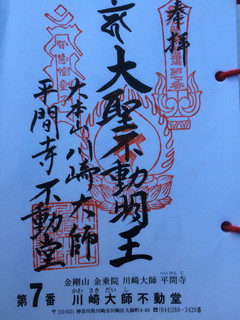 奉拝
大聖不動明王
大本山川崎大師
平間寺不動堂
金剛山 金乗院 川崎大師 平間寺
へいけんじ
かわさきだいし
第7番 川崎大師不動堂
〒210-8521 神奈川県川崎市川崎区大師町4-48 ☎(044)266-3420番